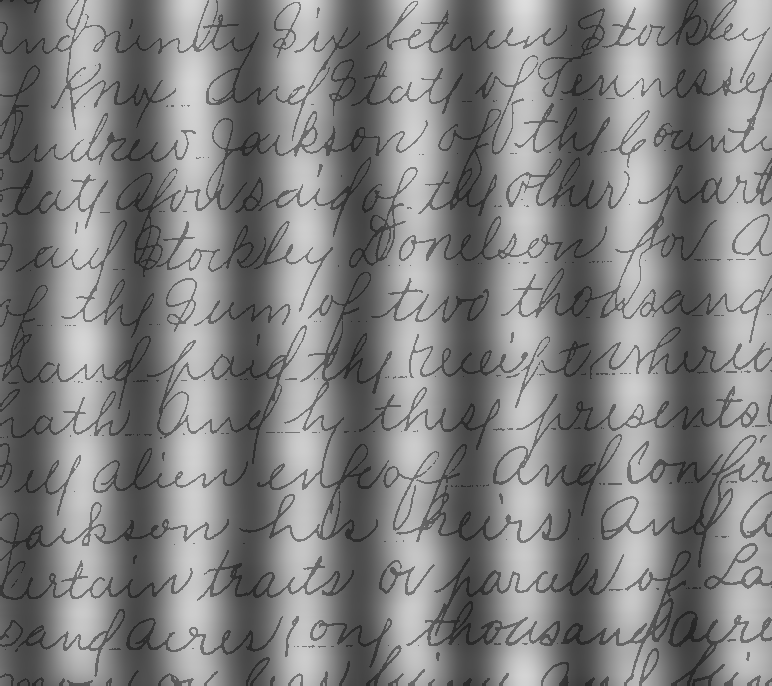 and ninety Six between Stockley
of Knox and State of Tennessee
Andrew Jackson of the County
State aforesaid of the other part
Said Stockley Donelson for a
of the Sum of two thousand
hand paid the receipt where
hath and by these presents
Sell alien enfeoff and Confir
Jackson his heirs and a
Certain tracts or parcels of La
sand acres, one thousand acre